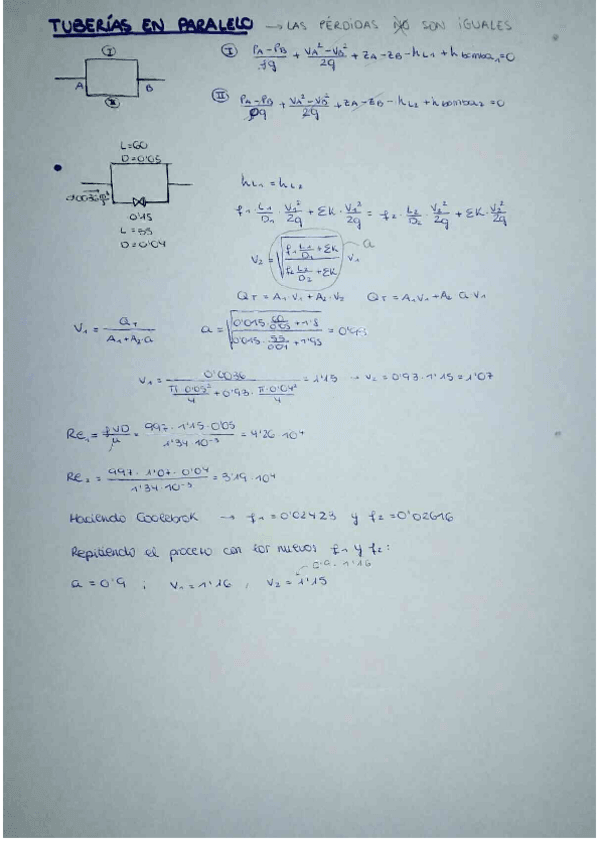 TUBERÍAS EN PARALELO → LAS PÉRDIDAS NO SON IGUALES
I
A B
II
I (PA-PB)/ρg + (VA²-VB²)/2g + ZA-ZB - hL1 + hbomba1 = 0
II (PA-PB)/ρg + (VA²-VB²)/2g + ZA-ZB - hL2 + hbomba2 = 0
L=60
D=0'05
0'15
L=55
D=0'04
hL1 = hL2
f1 · L1/D1 · V1²/2g + ΣK · V1²/2g = f2 · L2/D2 · V2²/2g + ΣK · V2²/2g
V2 = √((f1 L1/D1 + ΣK)/(f2 L2/D2 + ΣK)) V1 a
QT = A1·V1 + A2·V2 QT = A1V1 + A2 a V1
V1 = QT/(A1+A2·a) a = √((0'015·60/0'05 + 1'5)/(0'015·55/0'04 + 1'95)) = 0'93
V1 = 0'0036/(π·0'05²/4 + 0'93·π·0'04²/4) = 1'15 → V2 = 0'93·1'15 = 1'07
Re1 = ρVD/μ = 997·1'15·0'05/1'34·10⁻³ = 4'26·10⁴
Re2 = 997·1'07·0'04/1'34·10⁻³ = 3'19·10⁴
Haciendo Coolebrok → f1 = 0'02423 y f2 = 0'02616
Repitiendo el proceso con los nuevos f1 y f2:
0'9·1'16
a = 0'9 ; V1 = 1'16 , V2 = 1'15